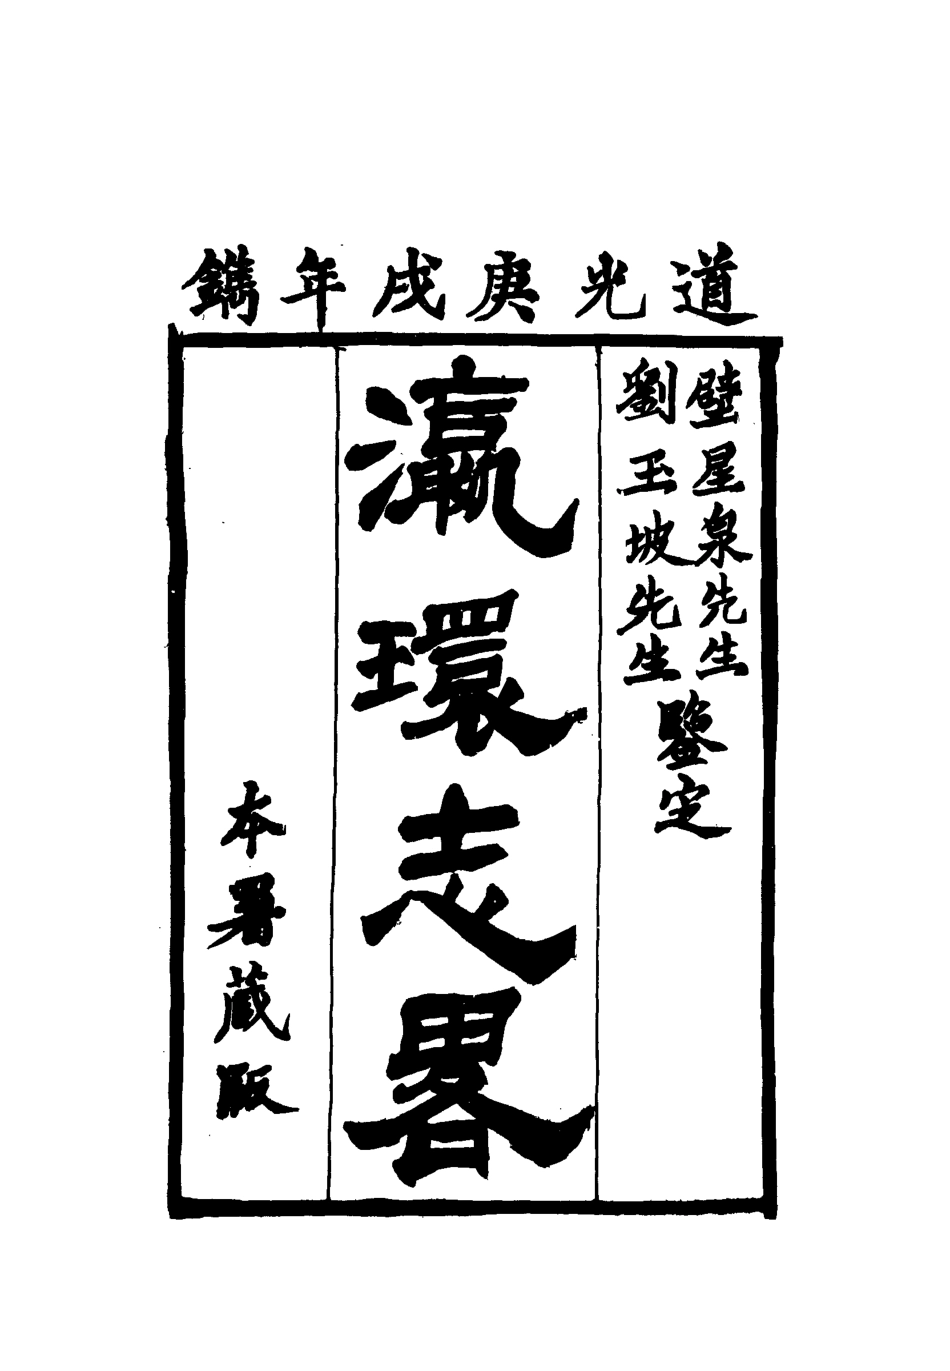 道光庚戌年鐫
壁星泉先生
劉玉坡先生
鑒定
瀛環志畧
本署藏版